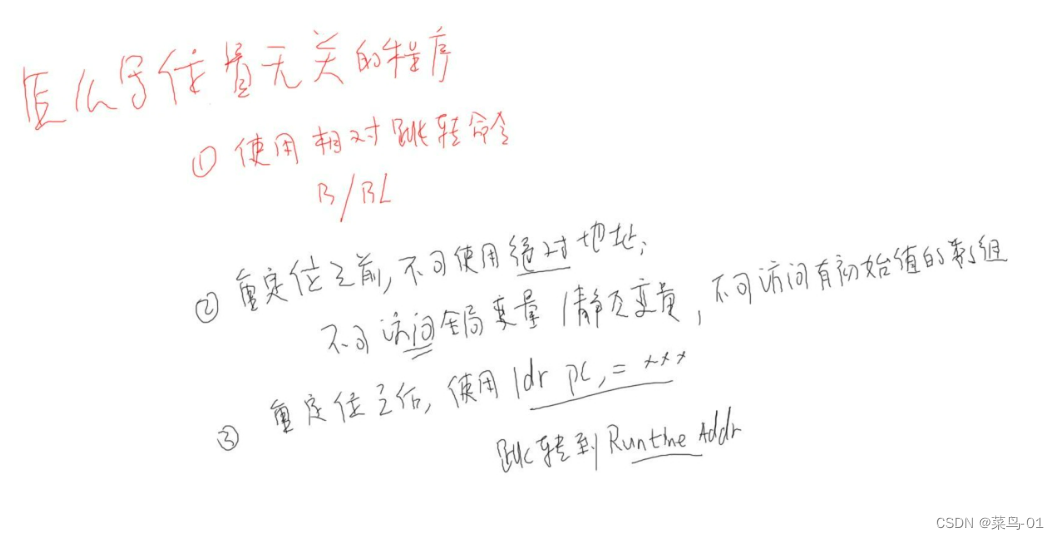 怎么写位置无关的程序
① 使用相对跳转命令
B/BL
② 重定位之前,不可使用绝对地址;
不可访问全局变量/静态变量,不可访问有初始值的数组
③ 重定位之后,使用 ldr pc, = ***
跳转到 Runtime Addr
CSDN @菜鸟-01